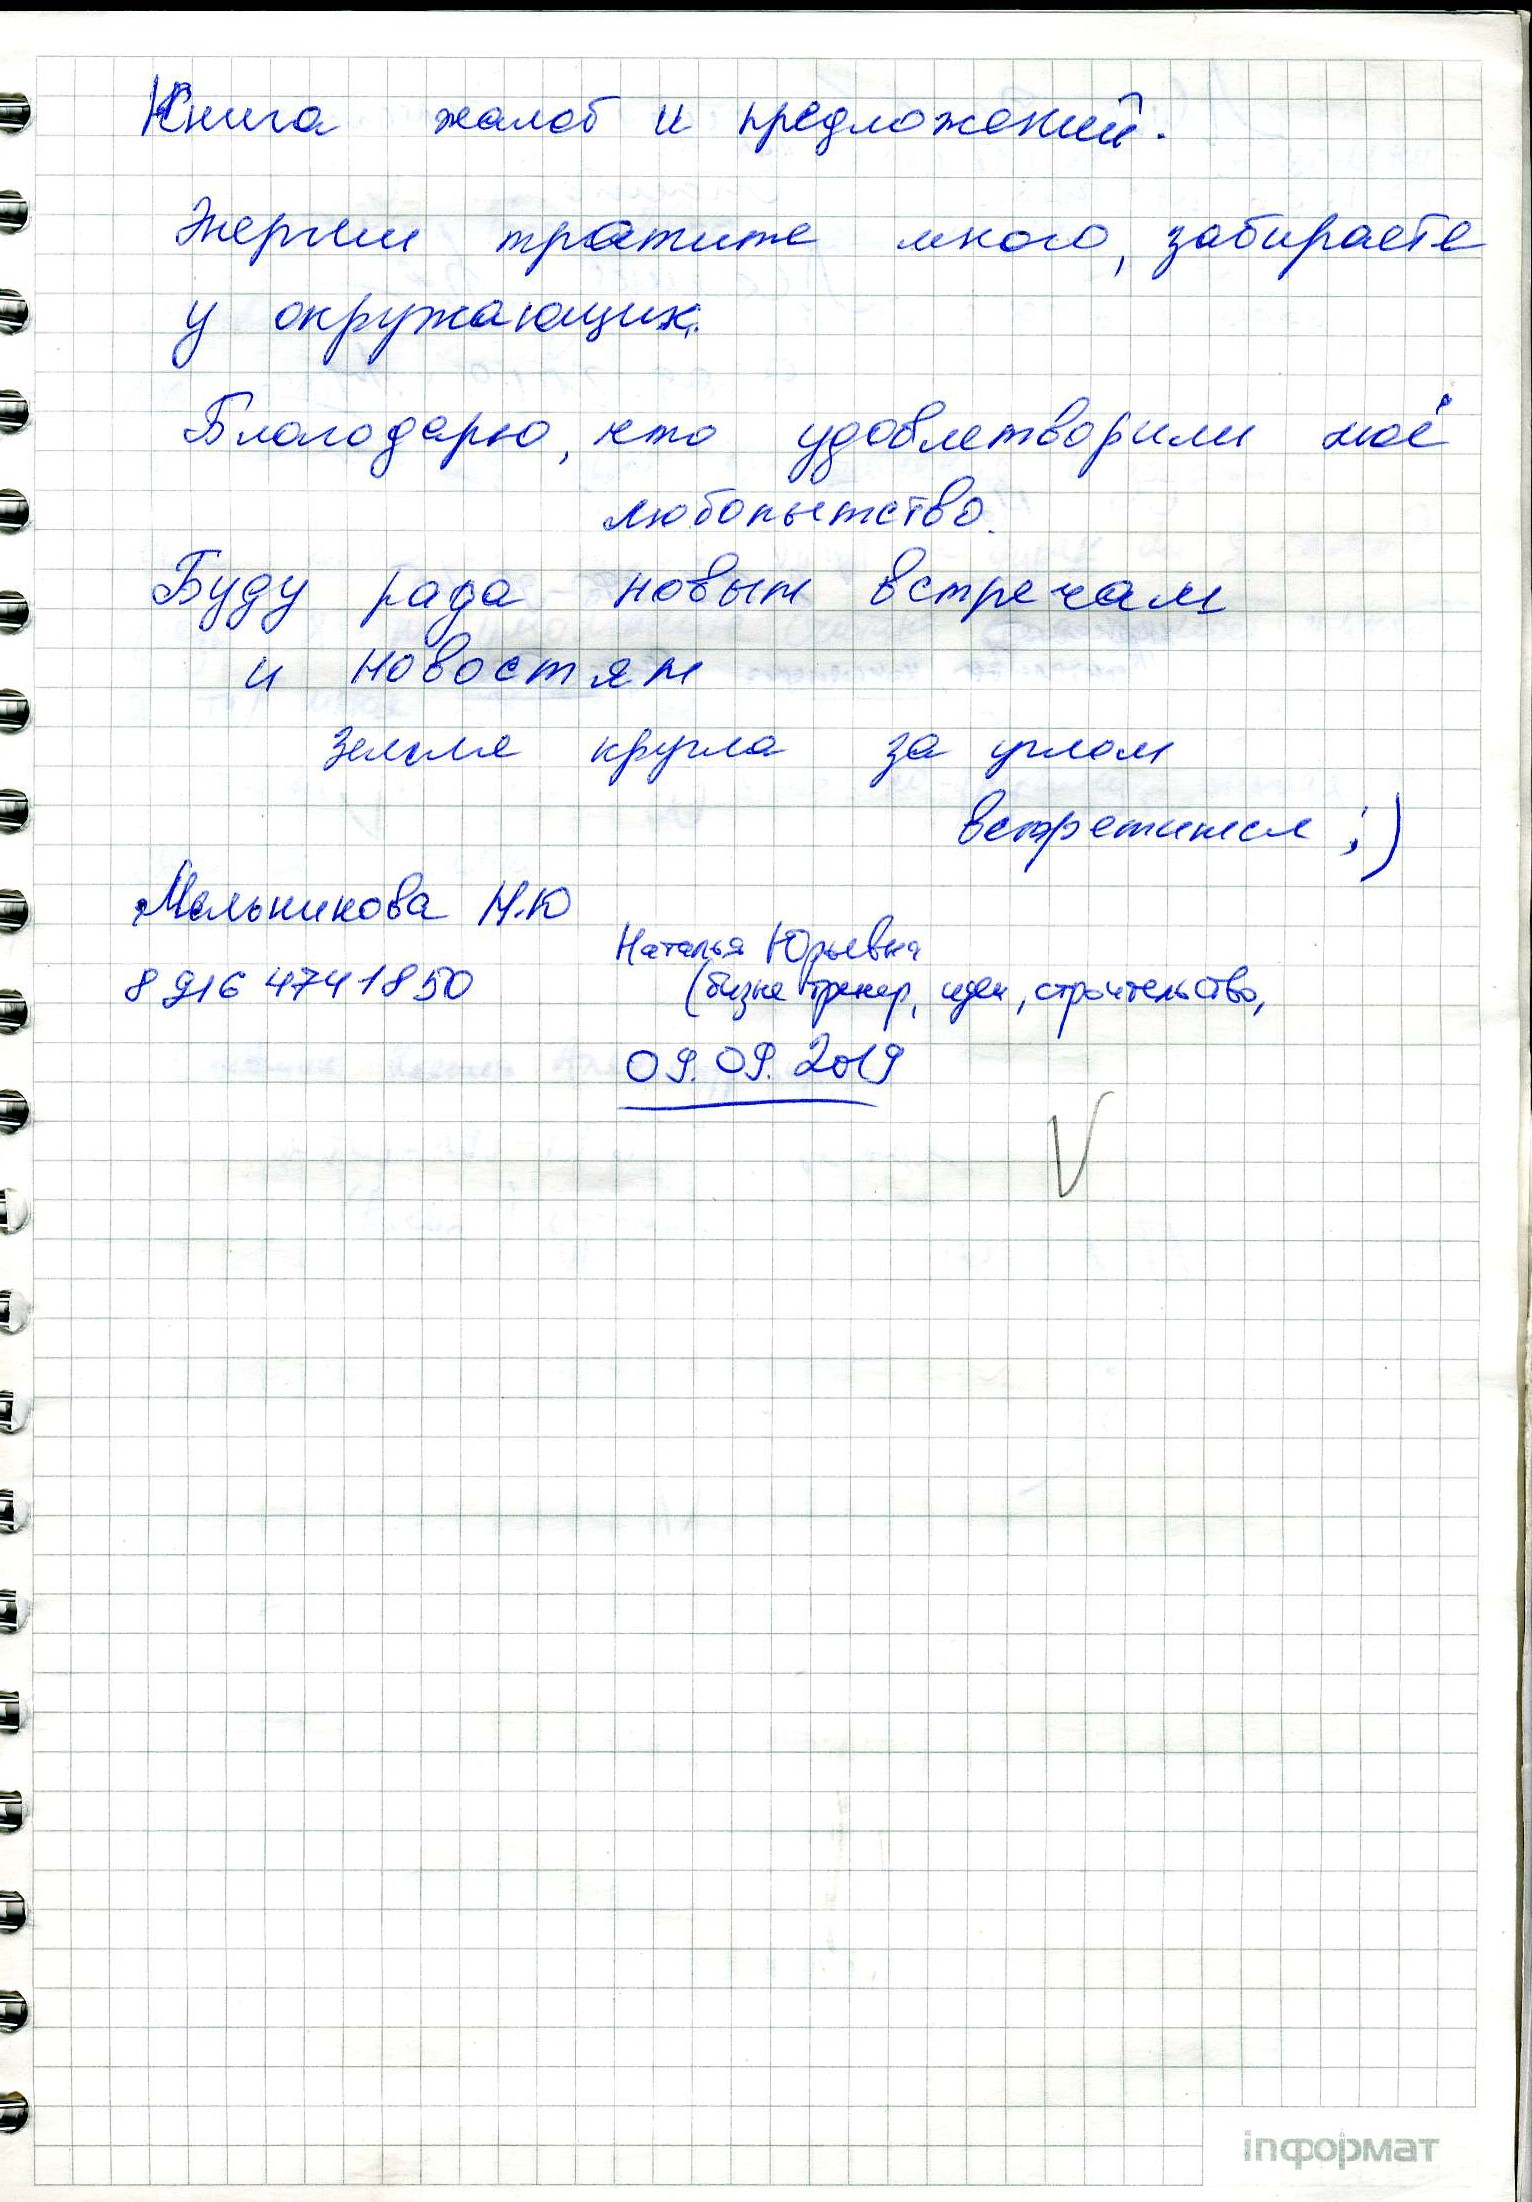 Книга жалоб и предложений.
Энергии тратите много, забираете
у окружающих.
Благодарю, что удовлетворили моё
любопытство.
Буду рада новым встречам
и новостям
Земля кругла за углом
встретимся ;)
Мельникова Н.Ю
Наталья Юрьевна
8 916 4741850
(бизне тренер, идеи, строительство,
09.09.2019
V
inформат